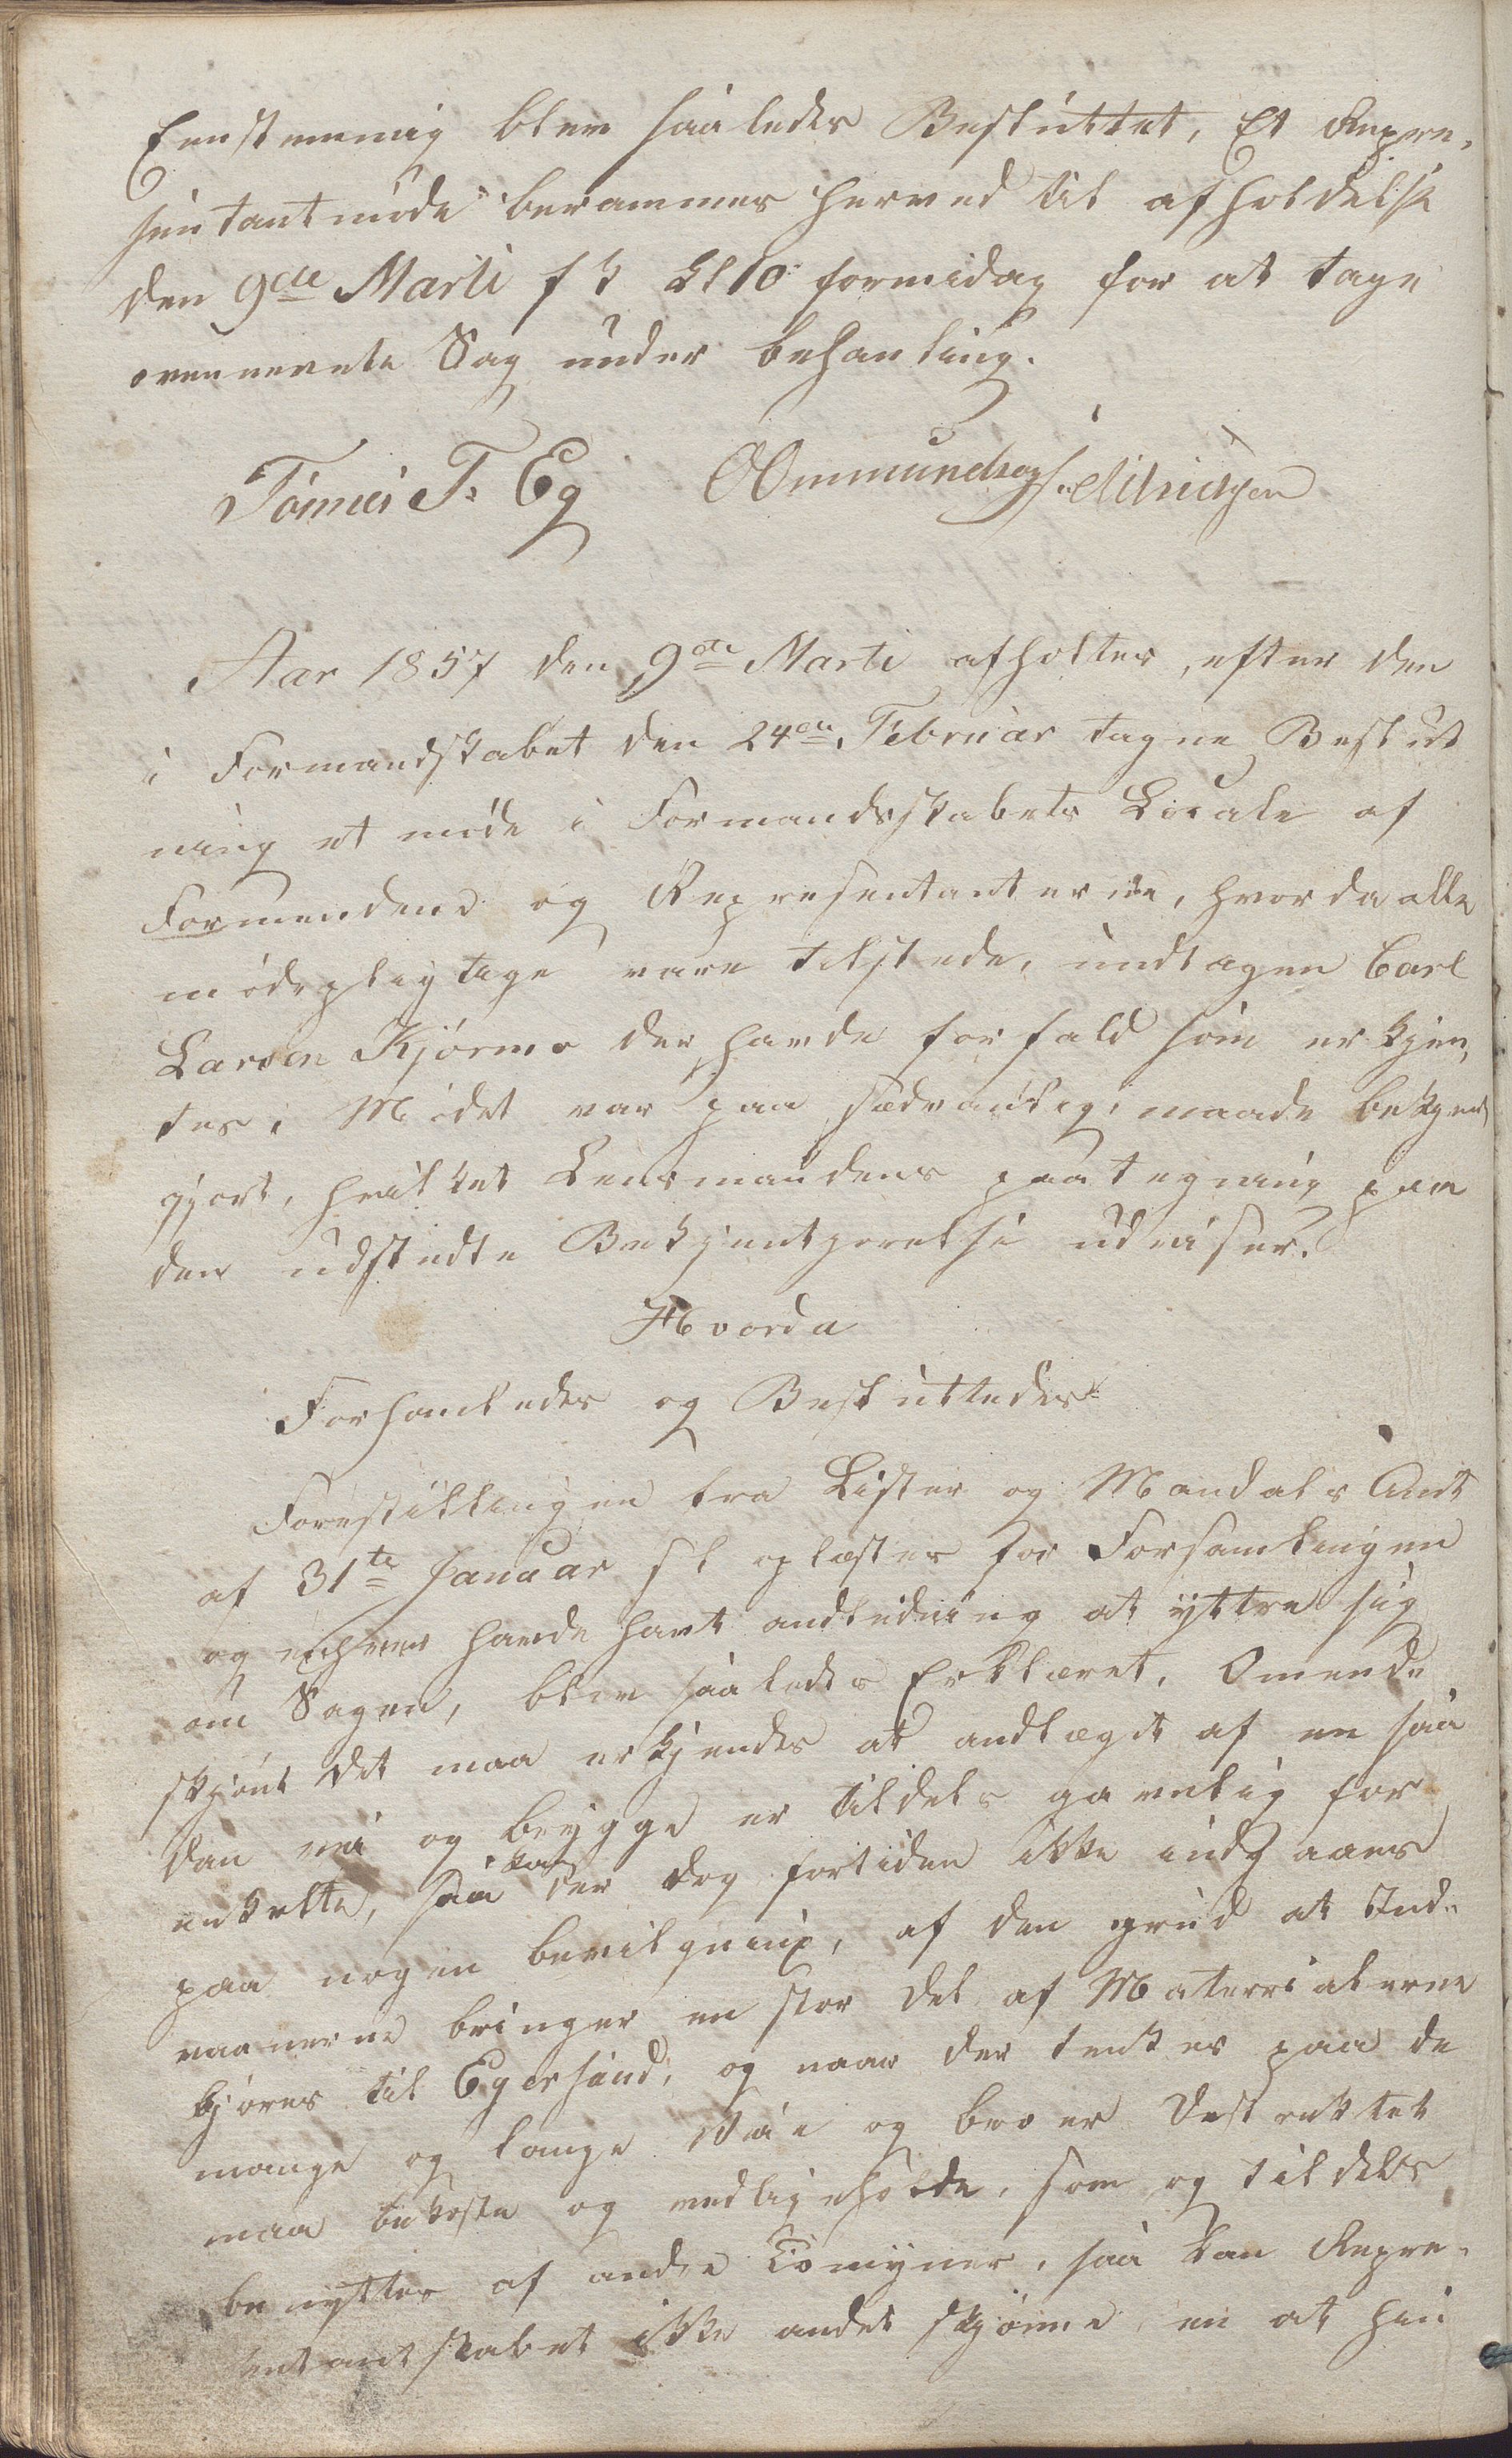 Eenstemmig blev saaledes Besluttet, Et Repre,
sentantmöde berammes herved til afholdelse
den 9de Marti f k Kl 10 formidag for at tage
ovennevnte Sag under behanling.
Tönnes T. Eg OOmmundsen
Aar 1857 den 9de Marti afholtes, efter den
i Formandskabet den 24de Februar tagne Beslut
ning et möde i Formandsskabets Locale af
Formendene og Representanterne, hvorda alle
mödepligtige vare tilstede, undtagen Carl
Larsen Kjörmo der havde forfald som erkjen,
tes, Mödet var paa sedvanlig maade bekjent
gjort, hvilket Lensmandens paategning paa
den udstedte Bekjentgjorelse udviser.
Hvorda
Forhanledes og Besluttedes
Forestillingen fra Lister og Mandals Amt
af 31te Januar sl oplæstes for Forsamlingen
og enhver havde havt andledning at yttre sig
om Sagen, blev saaledes Erklæret, Omende
skjönt det maa erkjendes at andlæget af en saa
dan vei og brygge er tildels gavnlig for
enkelte, saa kan der dog fortiden ikke indgaaes
paa nogen bevilgning, af den grund at Ind-
vaanerne bringer en stor del af Materrialerne
kjöres til Egersund, og naar der tenkes paa de
mange og lange Veie og broer Destriktet
maa bekoste og vedligeholde, som og tildels
benyttes af andre Comyner, saa kan Repre-
sentantskabet ikke andet skjönne en at hin